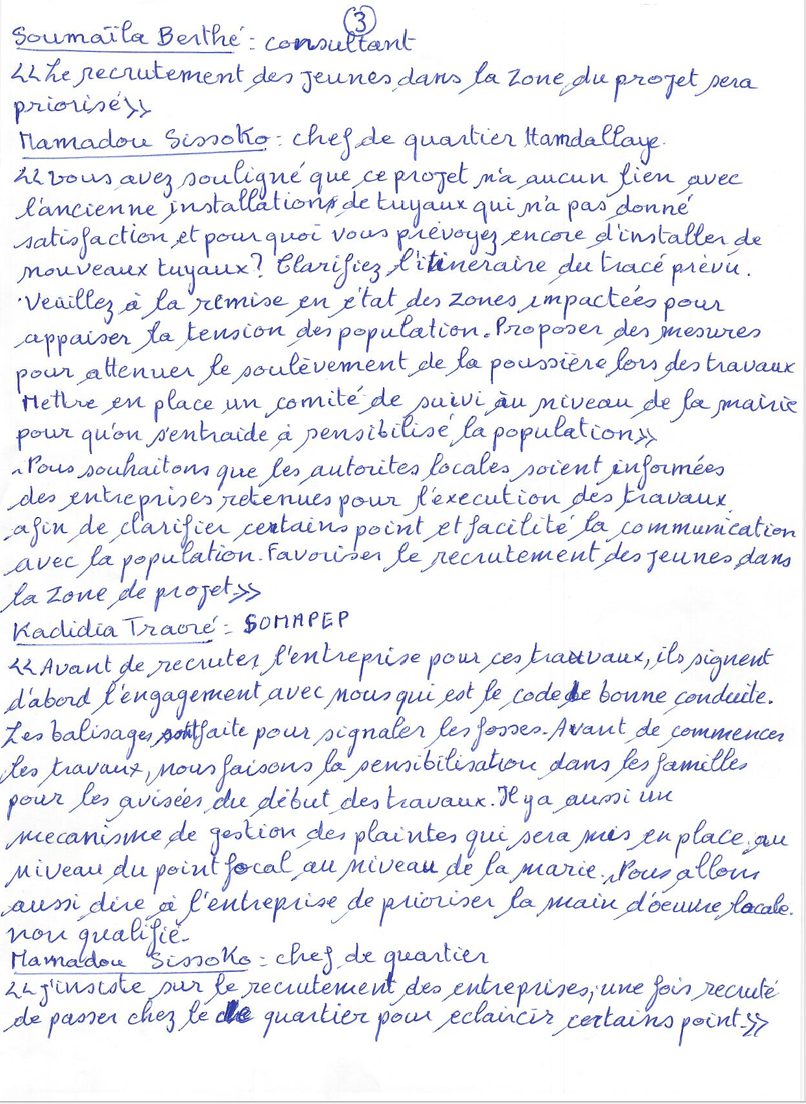 ③
Soumaïla Berthé : consultant
<<Le recrutement des jeunes dans la zone du projet sera
priorisé>>
Mamadou Sissoko : chef de quartier Hamdallaye.
<<vous avez souligné que ce projet n'a aucun lien avec
l'ancienne installations de tuyaux qui n'a pas donné
satisfaction et pourquoi vous prévoyez encore d'installer de
nouveaux tuyaux? Clarifiez l'itinéraire du tracé prévu.
Veuillez à la remise en état des zones impactées pour
appaiser la tension des population. Proposer des mesures
pour attenuer le soulèvement de la poussière lors des travaux
Mettre en place un comité de suivi au niveau de la mairie
pour qu'on s'entraide à sensibilisé la population>>
- Nous souhaitons que les autorites locales soient informées
des entreprises retenues pour l'execution des travaux
afin de clarifier certains point et facilité la communication
avec la population. Favoriser le recrutement des jeunes dans
la zone de projet>>
Kadidia Traoré : SOMAPEP
<<Avant de recruter l'entreprise pour ces travaux, ils signent
d'abord l'engagement avec nous qui est le code de bonne conduite.
Les balisages sont faite pour signaler les fosses. Avant de commencer
les travaux, nous faisons la sensibilisation dans les familles
pour les avisées du début des travaux. Il y a aussi un
mecanisme de gestion des plaintes qui sera mis en place au
niveau du point focal au niveau de la marie. Nous allons
aussi dire à l'entreprise de prioriser la main d'oeuvre locale.
non qualifié.
Mamadou Sissoko : chef de quartier
<<j'insiste sur le recrutement des entreprises, une fois recruté
de passer chez le quartier pour eclaircir certains point>>